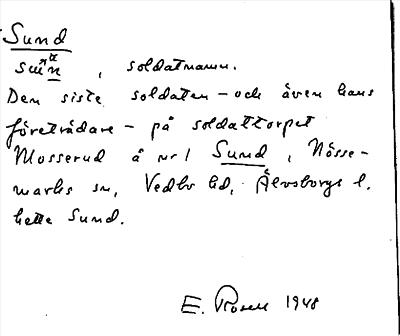 Sund
, soldatnamn.
Den siste soldaten – och även hans
företrädare – på soldattorpet
Mosserud å nr 1 Sund, Nösse-
marks sn, Vedbo hd, Älvsborgs l.
hette Sund.
E. Rosell 1948